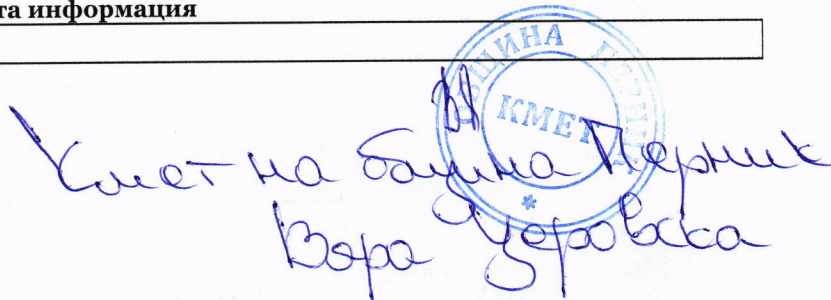 та информация
ОБЩИНА ПЕРНИК
КМЕТ
Кмет на община Перник
Вяра Церовска